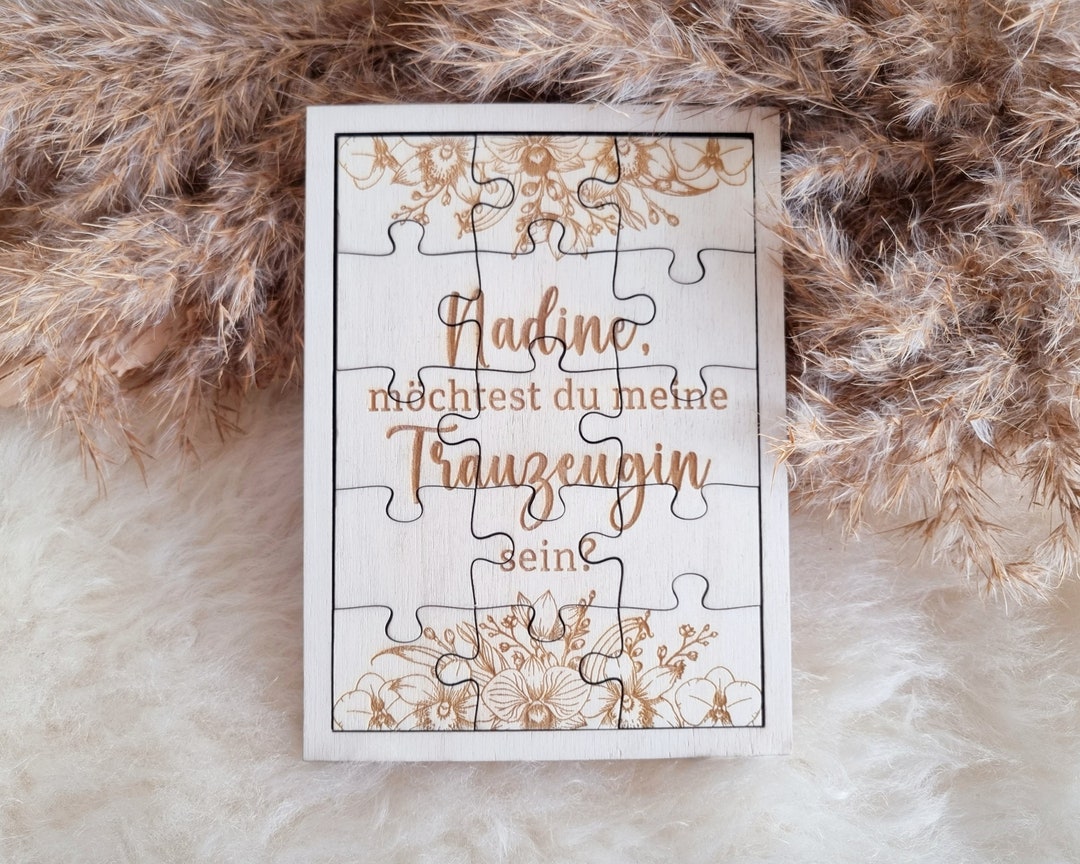 Nadine,
möchtest du meine
Trauzeugin
sein?